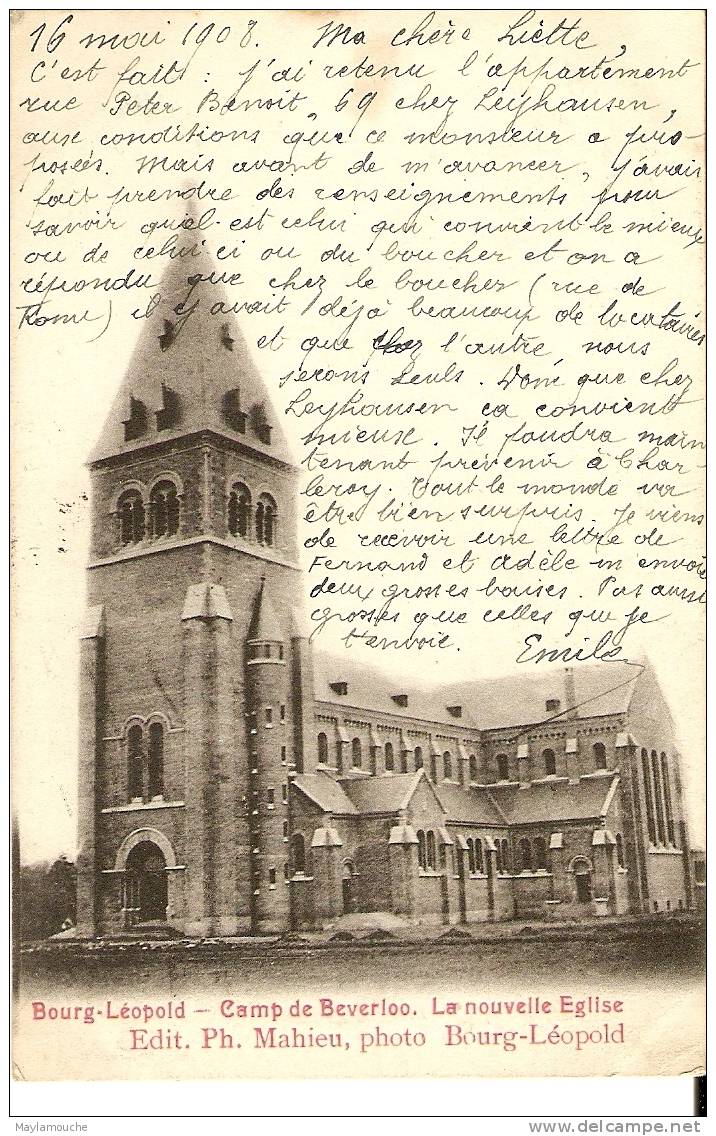 16 mai 1908. Ma chère Liette,
C'est fait : j'ai retenu l'appartement
rue Peter Benoit, 69 chez Leyhausen,
aux conditions que ce monsieur a pro-
posées. Mais avant de m'avancer, j'avais
fait prendre des renseignements pour
savoir quel est celui qui convient le mieux
ou de celui ci ou du boucher et on a
répondu que chez le boucher (rue de
Rome) il y avait déjà beaucoup de locataires
et que l'autre, nous
serons seuls. Donc que chez
Leyhausen ça convient
mieux. Il faudra main
tenant prévenir à Char-
leroy. Tout le monde va
être bien surpris. Je viens
de recevoir une lettre de
Fernand et Adèle m'envoie
deux grosses baises. Pas aussi
grosses que celles que je
t'envoie. Emile
Bourg-Léopold — Camp de Beverloo. La nouvelle Eglise
Edit. Ph. Mahieu, photo Bourg-Léopold
Maylamouche
www.delcampe.net